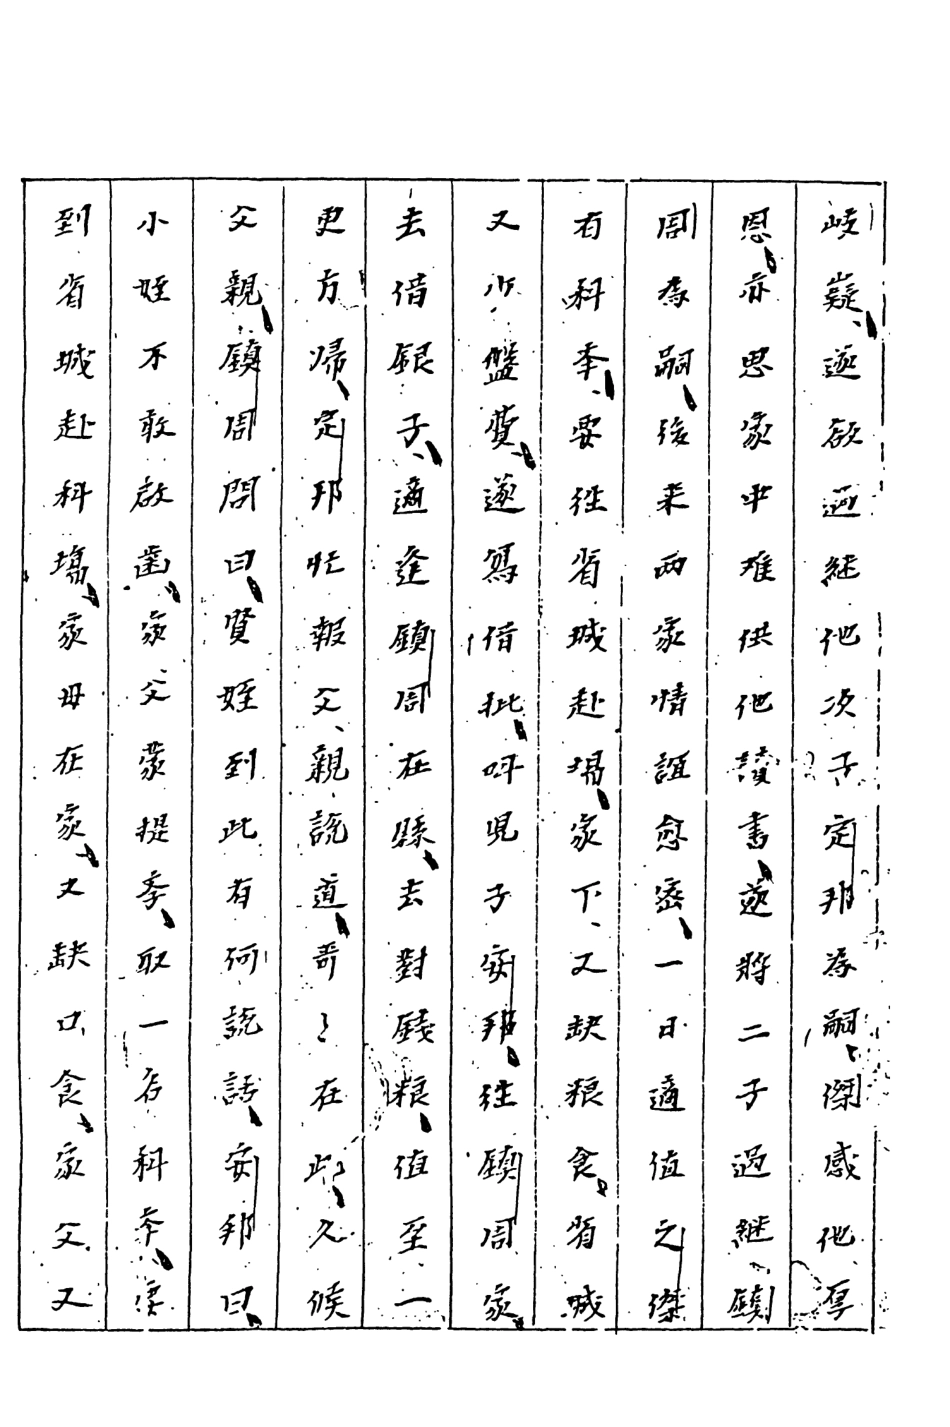 岐嶷、遂欲過継他次子定邦為嗣、傑感他厚
恩、亦思家中难供他讀書、遂將二子過継鎮
周為嗣、後来両家情誼愈密、一日適值之傑
有科季、要往省城赴場、家下、又缺粮食、省城
又少盤費、遂寫借批、呌児子安邦、往鎮周家、
去借銀子、適逢鎮周在縣、去對錢粮、值至一
更方帰、定邦忙報父、親說道、哥〻在此、久候
父親、鎮周問曰、賢姪到此有何說話、安邦曰、
小姪不敢啟齒、家父蒙提季、取一名科季、
到省城赴科塲、家母在家、又缺口食、家父又